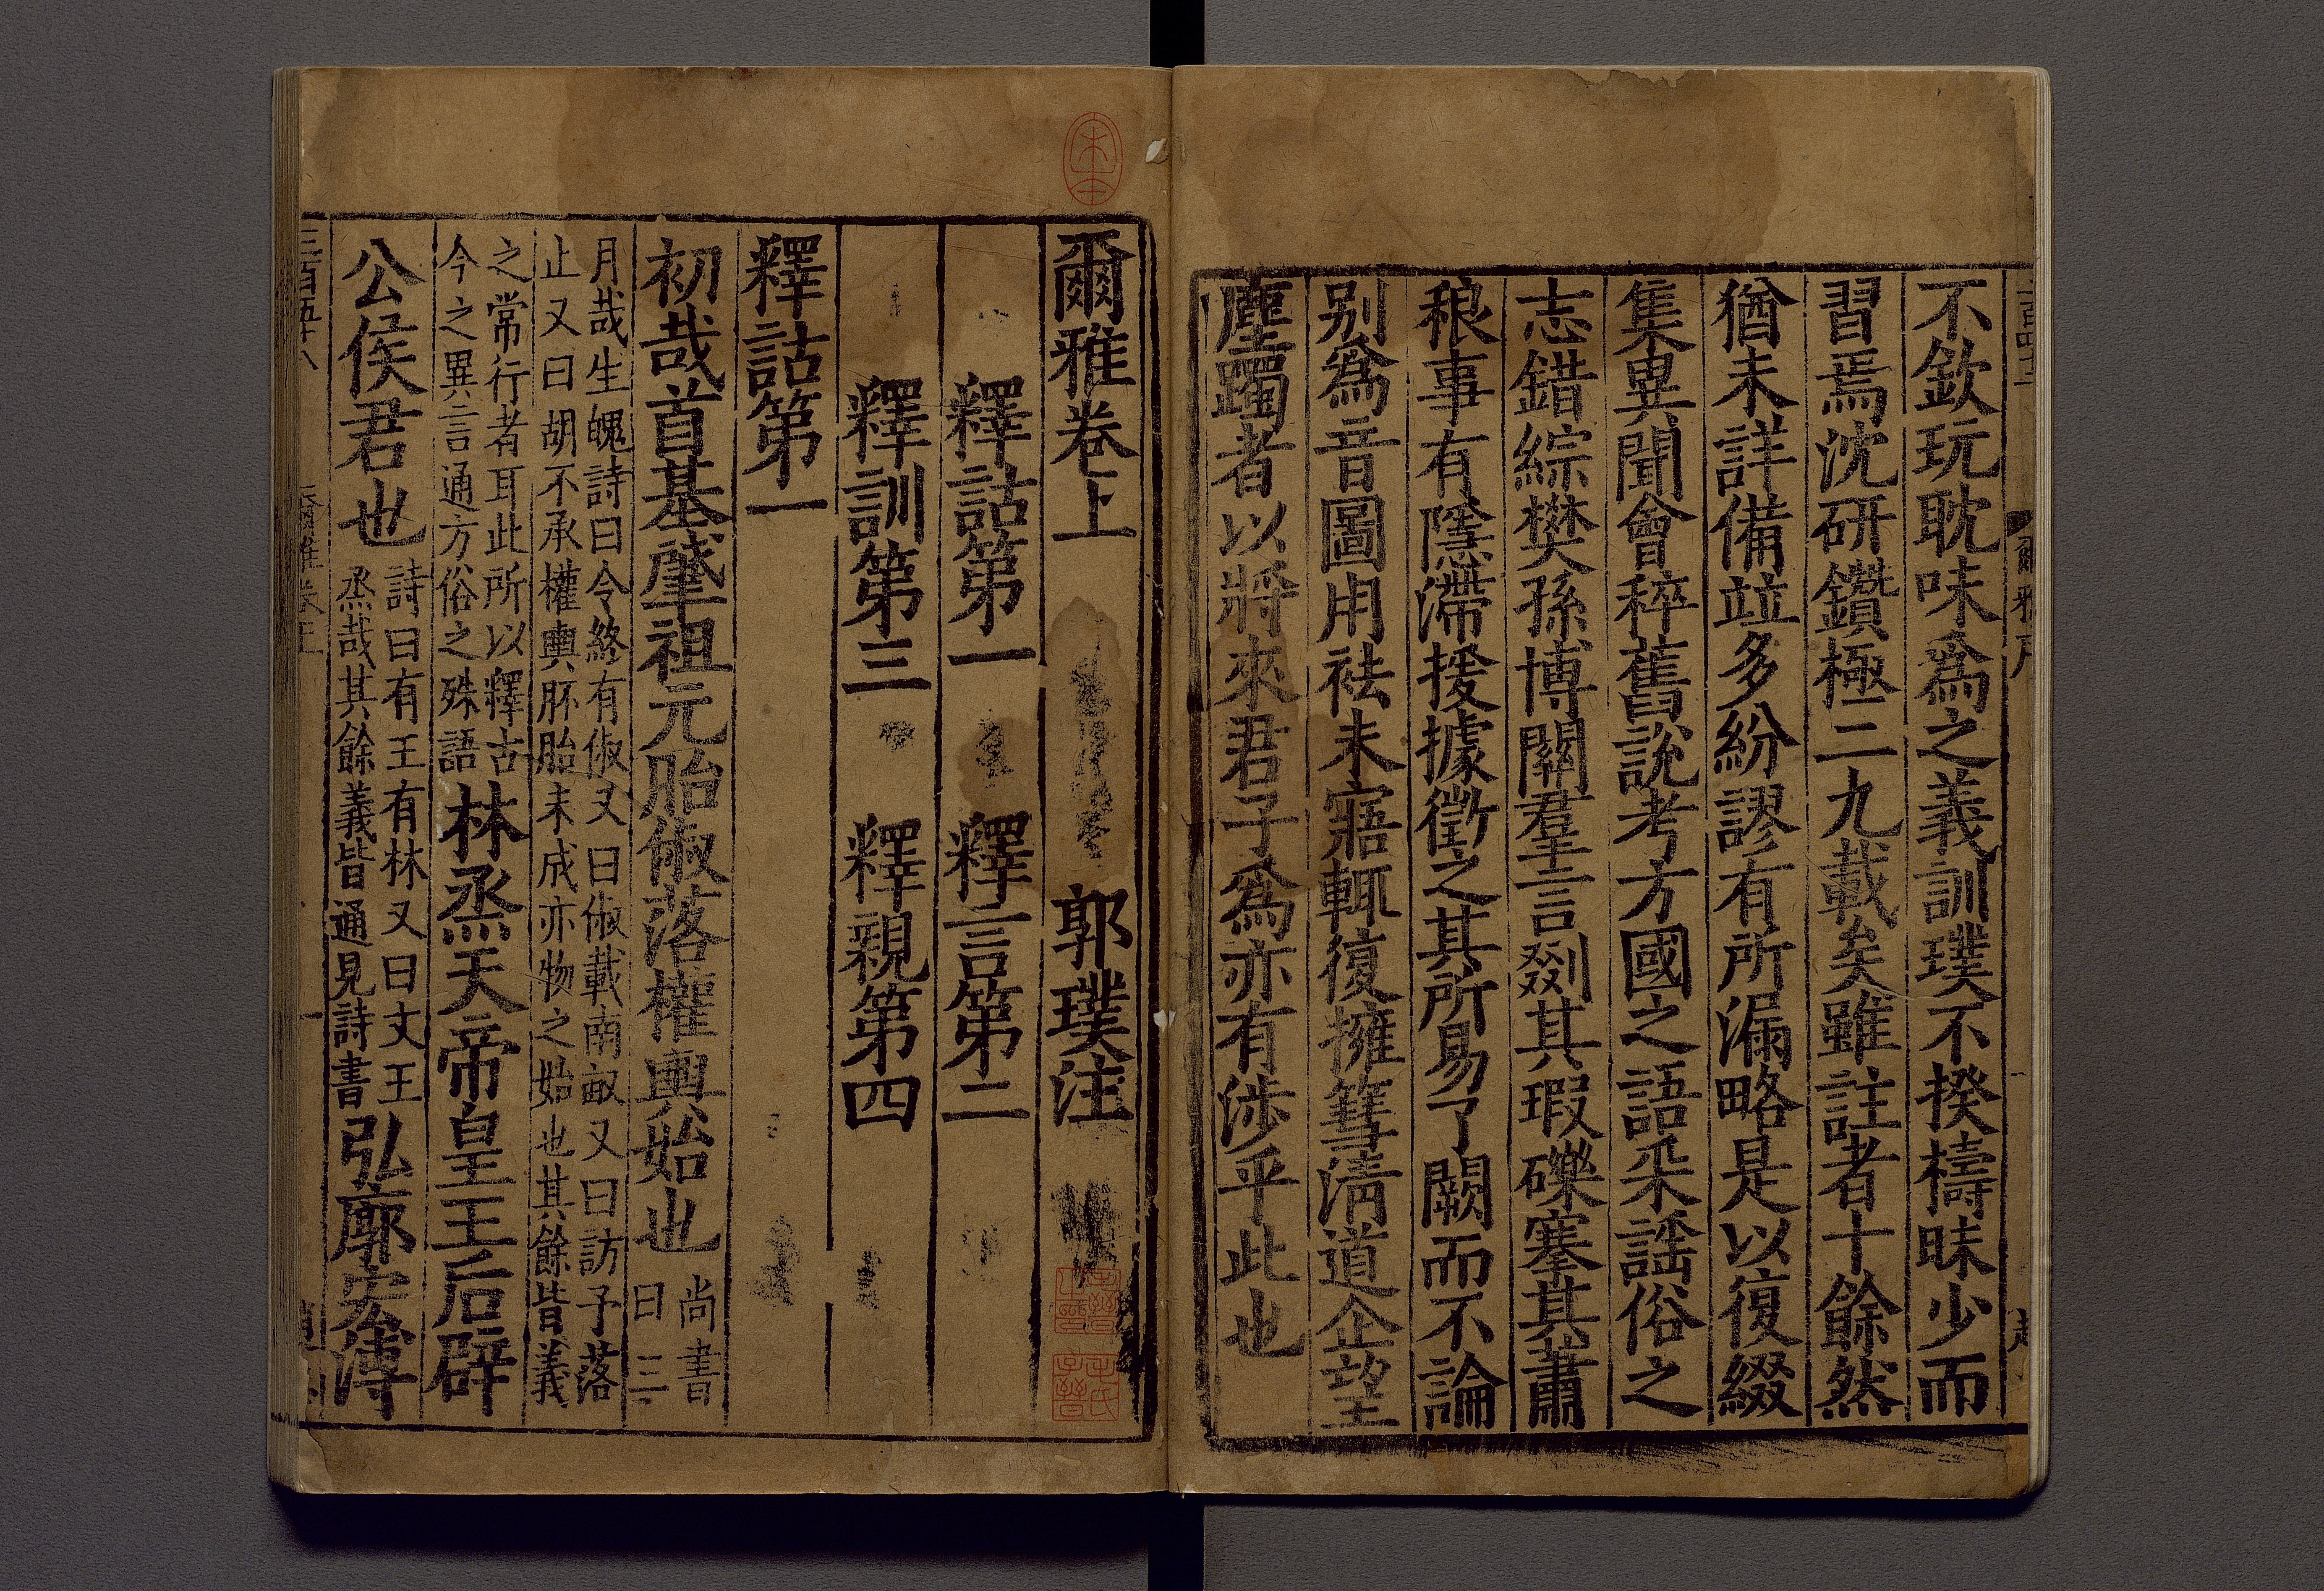 不欽玩耽味爲之義訓璞不揆檮昧少而
習焉沈研鑽極二九載矣雖註者十餘然
猶未詳備竝多紛謬有所漏略是以復綴
集異聞會稡舊說考方國之語采謠俗之
志錯綜樊孫博關羣言剟其瑕礫搴其蕭
稂事有隱滯援據徵之其所易了闕而不論
别爲音圖用袪未寤輒復擁篲淸道企望
塵躅者以將來君子爲亦有涉乎此也
爾雅卷上 郭璞注
釋詁第一 釋言第二
釋訓第三 釋親第四
釋詁第一
初哉首基肇祖元胎俶落權輿始也 尚書
曰三
月哉生魄詩曰令終有俶又曰俶載南畝又曰訪予落
止又曰胡不承權輿胚胎未成亦物之始也其餘皆義
之常行者耳此所以釋古
今之異言通方俗之殊語 林烝天帝皇王后辟
公侯君也 詩曰有王有林又曰文王
烝哉其餘義皆通見詩書 弘廓宏溥
三百五十八 爾雅卷上 一